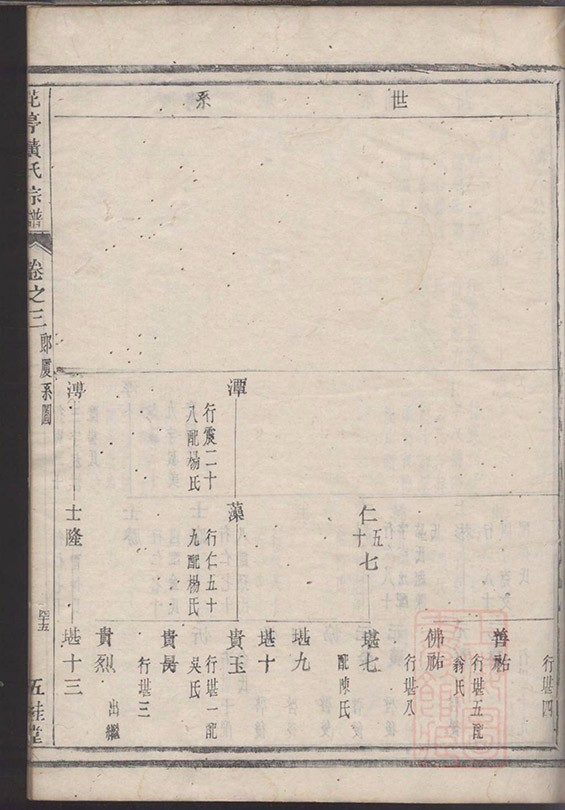 世系
行堪四
善祐
行堪五配
翁氏
佛祐
行堪八
仁五十七
堪七
配陳氏
堪九
堪十
潭
行震二十
八配楊氏
藻
行仁五十
九配楊氏
貴玉
行堪一配
吳氏
貴長
行堪三
貴烈
出繼
士隆
堪十三
花亭黃氏宗譜
卷之三
郎廈系圖
五桂堂